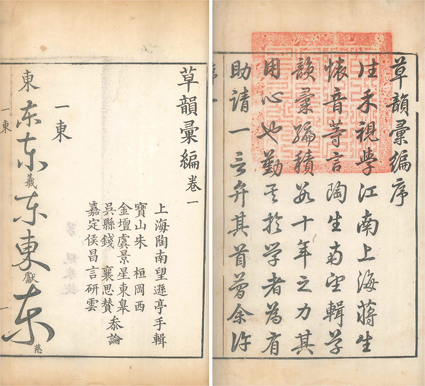 草韻彙編序
往余視學江南上海蔣生
懷音等言陶生南望輯草
韻彙編積數十年之力其
用心也勤其於學者為有
助請一言弁其首曾余許
草韻彙編卷一
上海陶南望遜亭手輯
寶山朱 桓岡西
金壇虞景星東皋
吳縣錢 襄思贊 叅論
嘉定侯昌言研雲
一東
東 东 东 羲 东 東 獻 东
一東